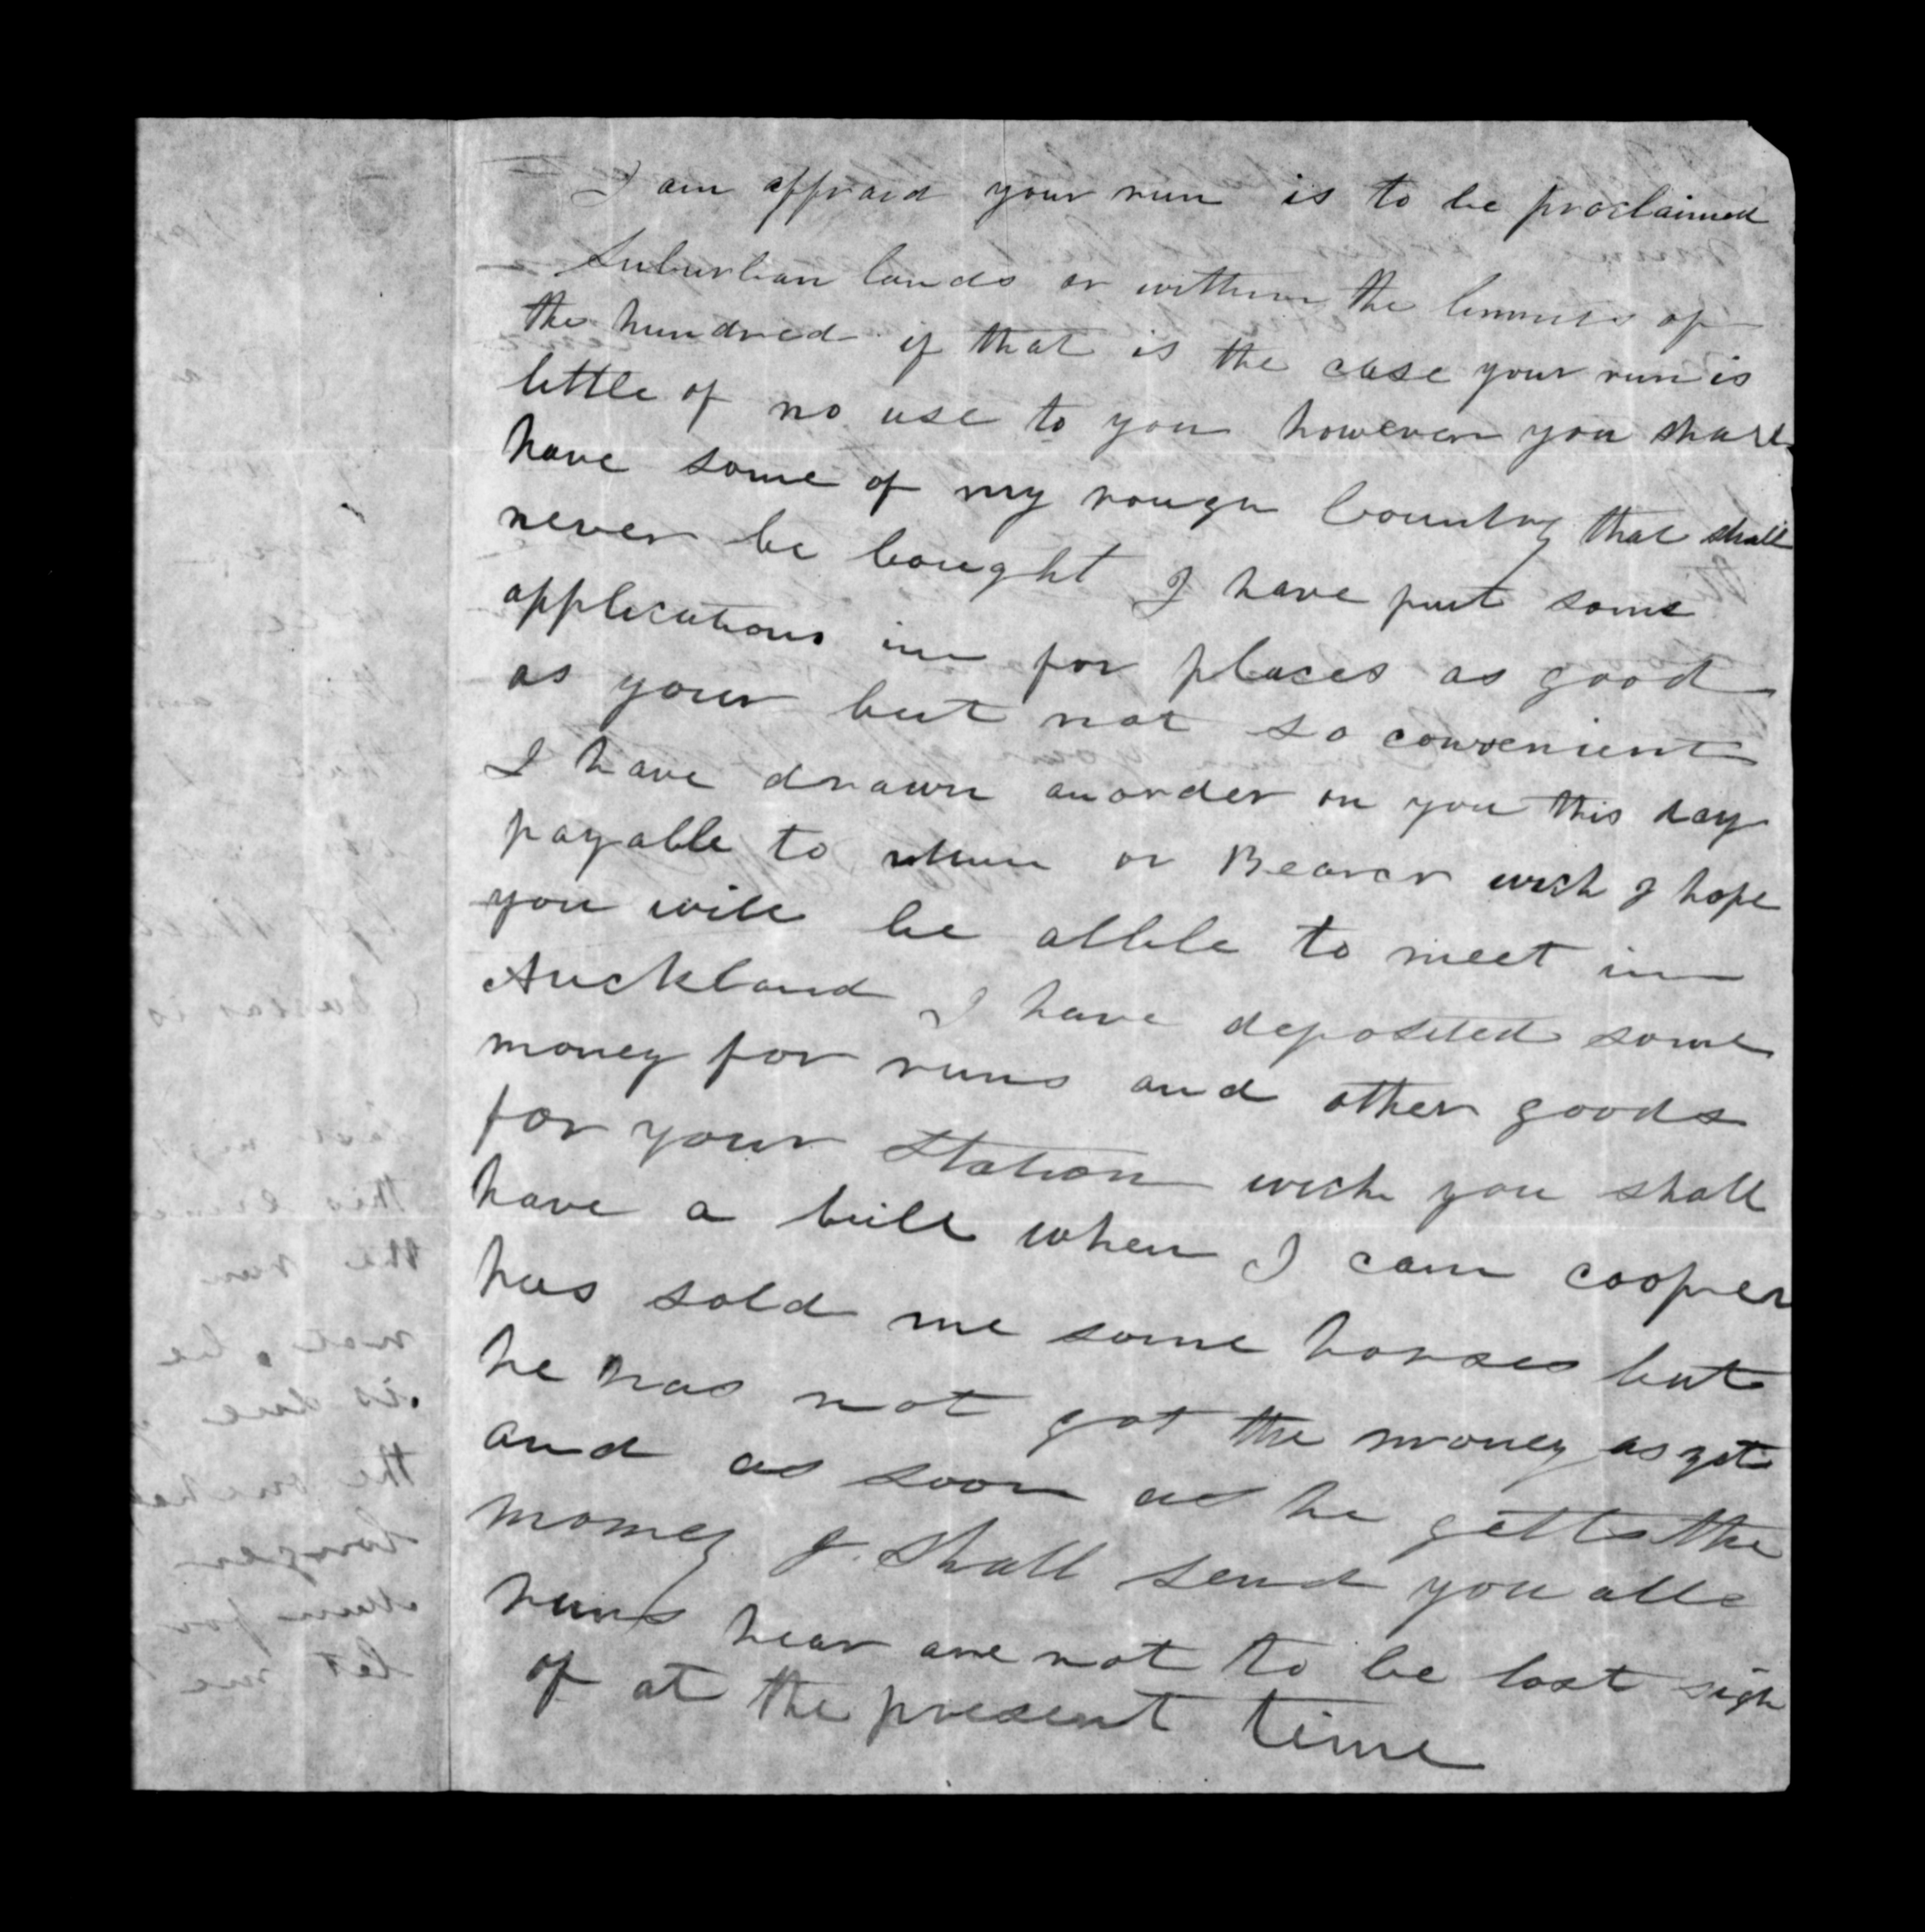 I am affraid your run is to be proclaimed
Suburban lands or within the limmits of
the hundred if that is the case your run is
little of no use to you however you shall
have some of my rough Country that shall
never be bought I have put some
applications in for places as good
as your but not so convenient
I have drawn an order on you this day
payable to or Bearer wich I hope
you will be able to meet in
Auckland I have deposited some
money for runs and other goods
for your Station wich you shall
have a bill when I can cooper
has sold me some horses but
he has not got the money as yet
and as soon as he getts the
money I shall send you all
runs hear are not to be lost sigh
of at the present time